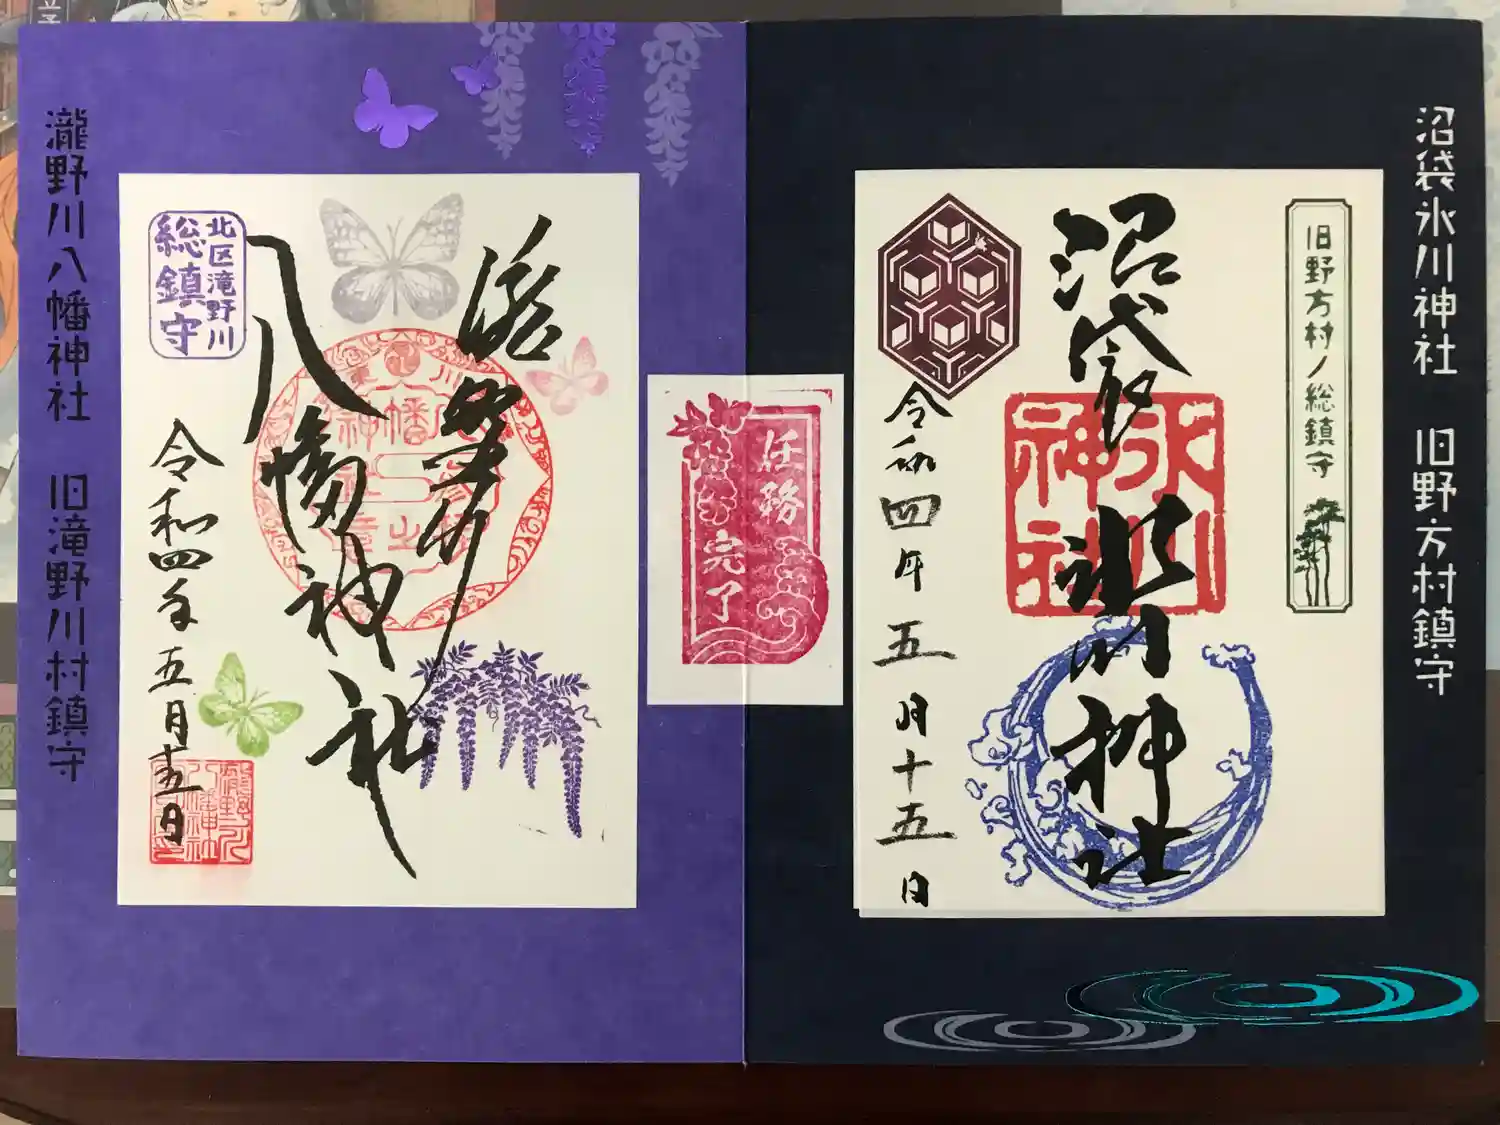 沼袋氷川神社 旧野方村鎮守
旧野方村ノ総鎮守
沼袋
氷川神社
氷川
神社
令和四年五月十五日
任務
完了
滝野川
八幡神社
北区滝野川
総鎮守
令和四年五月十五日
瀧野川八幡神社 旧滝野川村鎮守